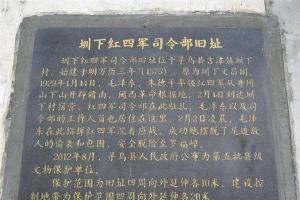 圳下红四军司令部旧址
圳下红四军司令部旧址位于寻乌县吉潭镇圳下
村，始建于明万历三年（1575），原为圳下文昌阁。
1929年1月14日，毛泽东、朱德等率领红四军从井冈
山下山开辟赣南、闽西革命根据地，2月1日到达圳
下村宿营，红四军司令部在此驻扎，毛泽东以及司
令部的工作人员也居住在这里。2月2日凌晨，毛泽
东在此指挥红四军沉着应战，成功地摆脱了尾追敌
人的偷袭和包围，安全脱险至罗福嶂。
2012年8月，寻乌县人民政府公布为第五批县级
文物保护单位。
保护范围为旧址四周向外延伸各10米，建设控
制地带为保护范围四周向外延伸各20米